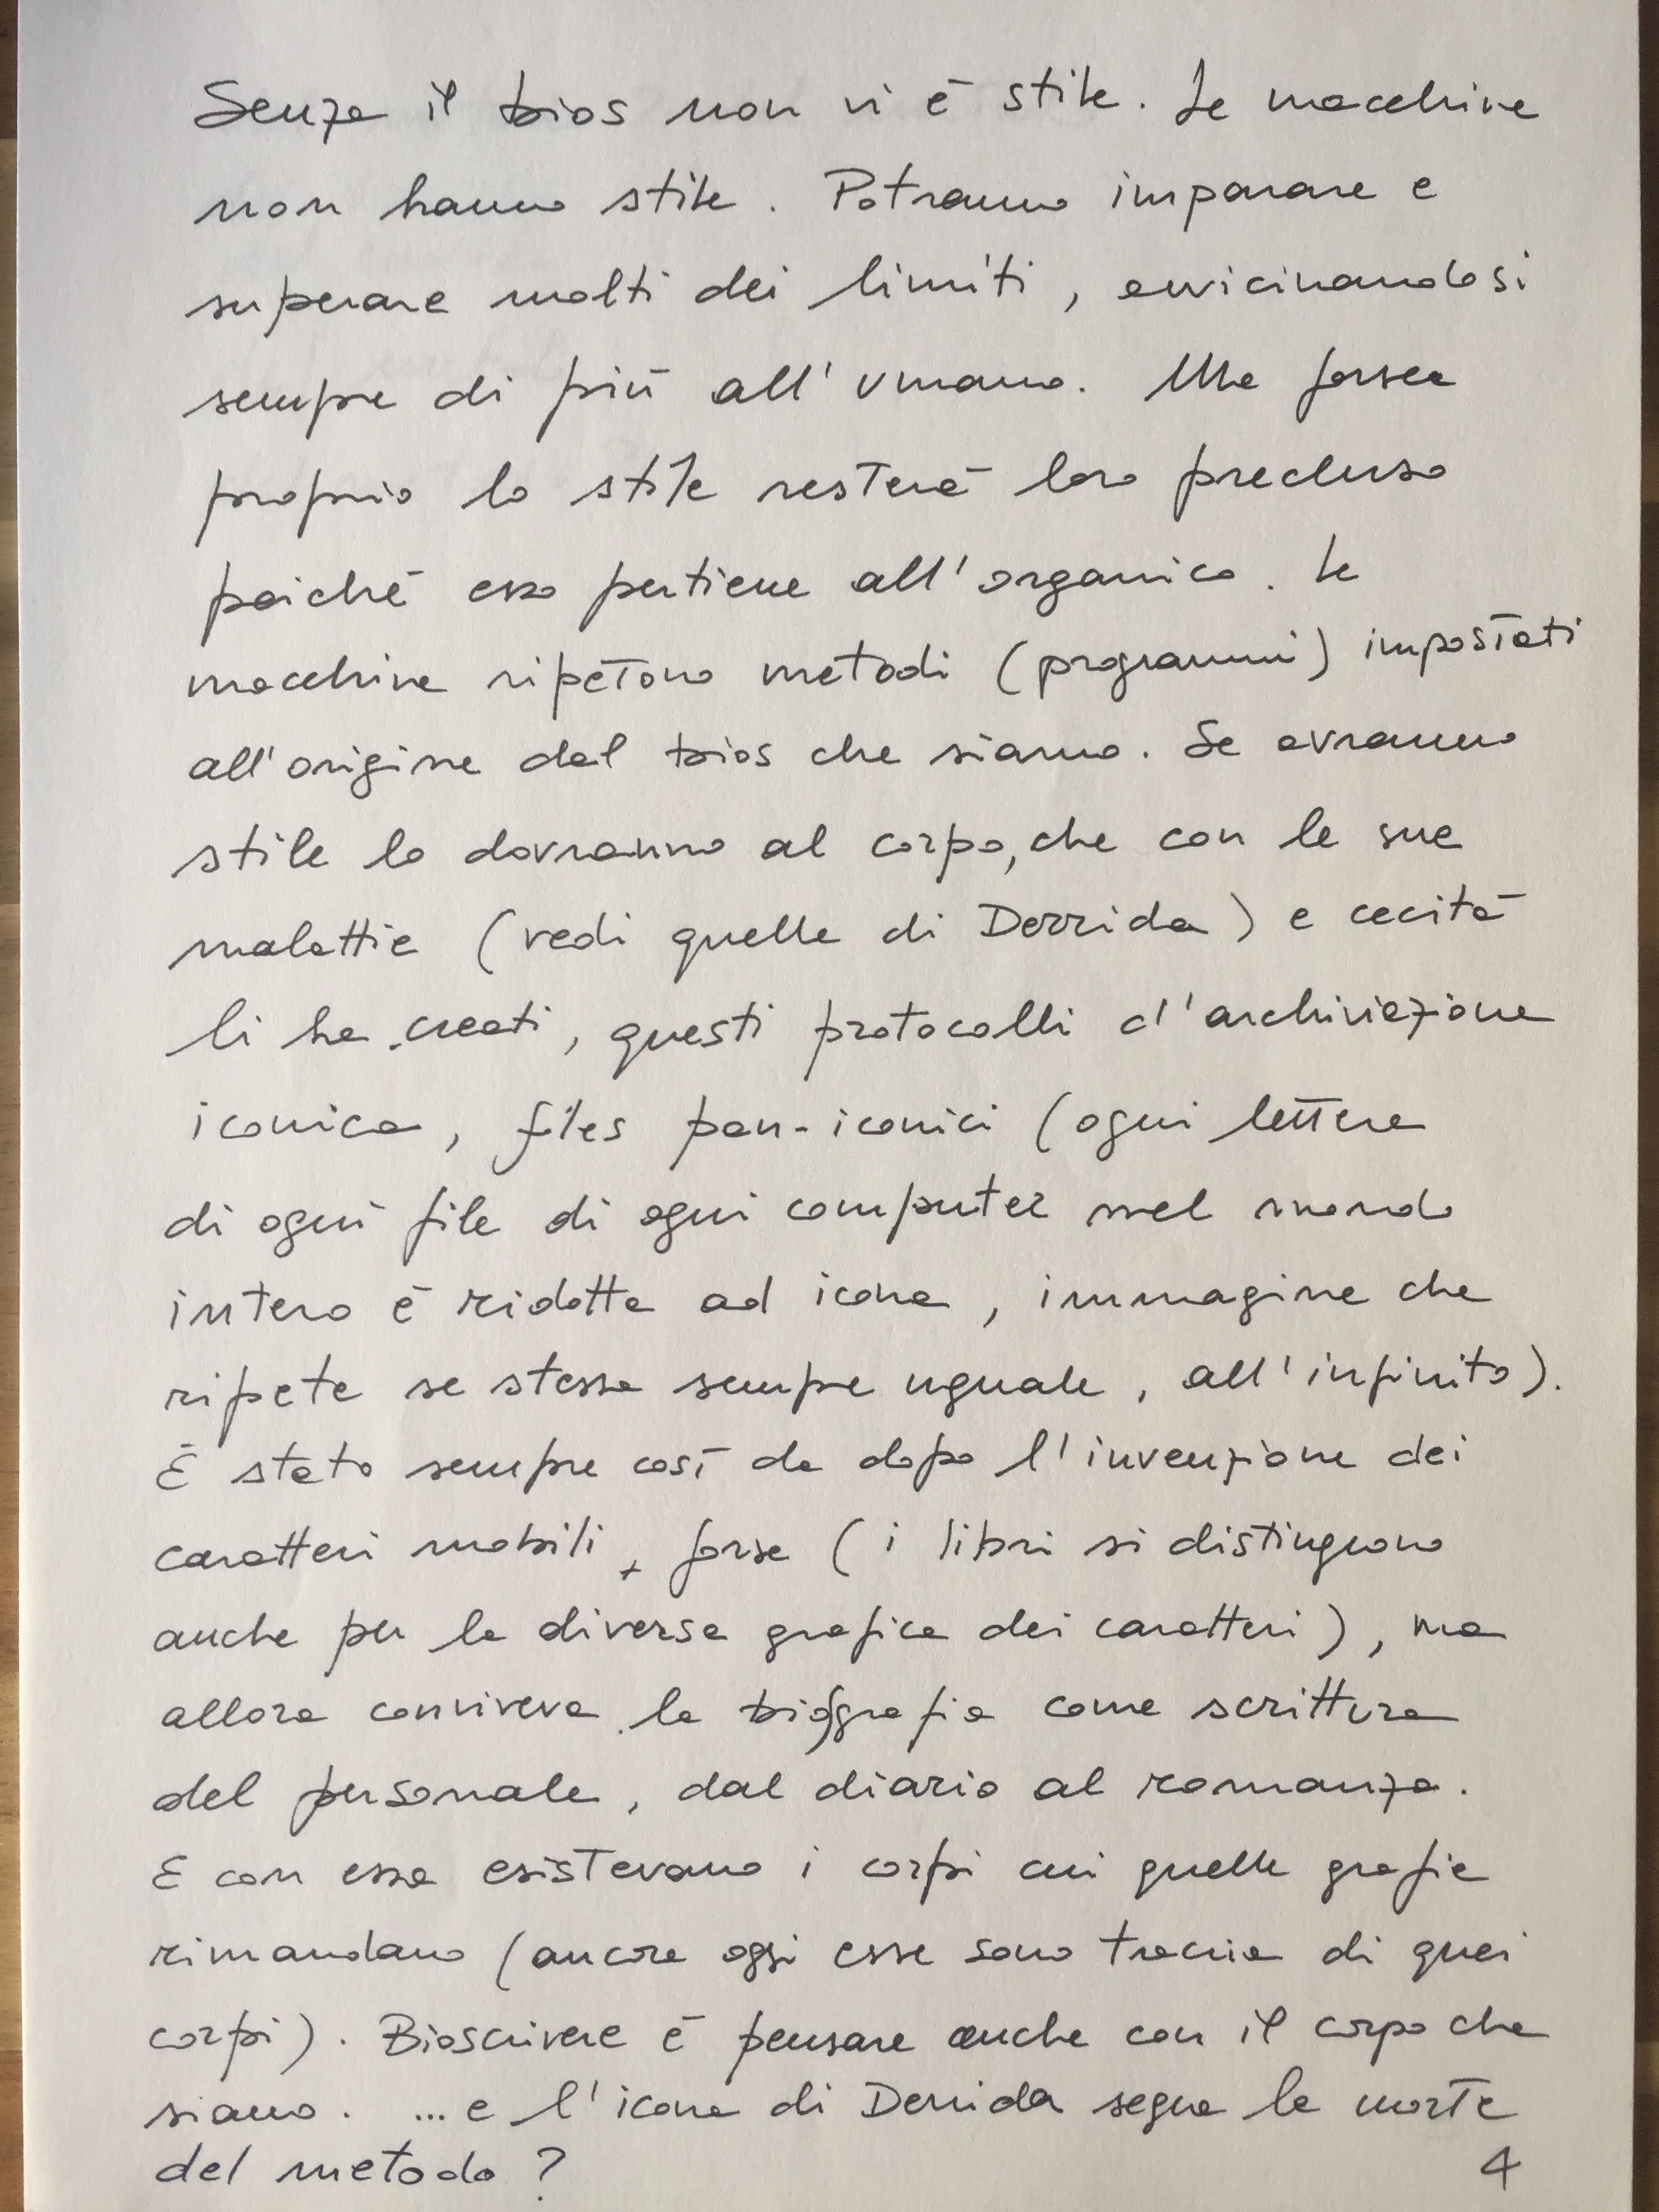 Senza il bios non vi è stile. Le macchine
non hanno stile. Potranno imparare e
superare molti dei limiti, avvicinandosi
sempre di più all'umano. Ma forse
proprio lo stile resterà loro precluso
poiché esso pertiene all'organico. Le
macchine ripetono metodi (programmi) impostati
all'origine dal bios che siamo. Se avranno
stile lo dovranno al corpo, che con le sue
malattie (vedi quelle di Derrida) e cecità
li ha creati, questi protocolli d'archiviazione
iconica, files pan-iconici (ogni lettera
di ogni file di ogni computer nel mondo
intero è ridotta ad icona, immagine che
ripete se stessa sempre uguale, all'infinito).
È stato sempre così da dopo l'invenzione dei
caratteri mobili, forse (i libri si distinguono
anche per la diversa grafica dei caratteri), ma
allora conviveva la biografia come scrittura
del personale, dal diario al romanzo.
E con essa esistevano i corpi cui quelle grafie
rimandano (ancora oggi esse sono traccia di quei
corpi). Bioscrivere è pensare anche con il corpo che
siamo. ... e l'icona di Derrida segna la morte
del metodo? 4